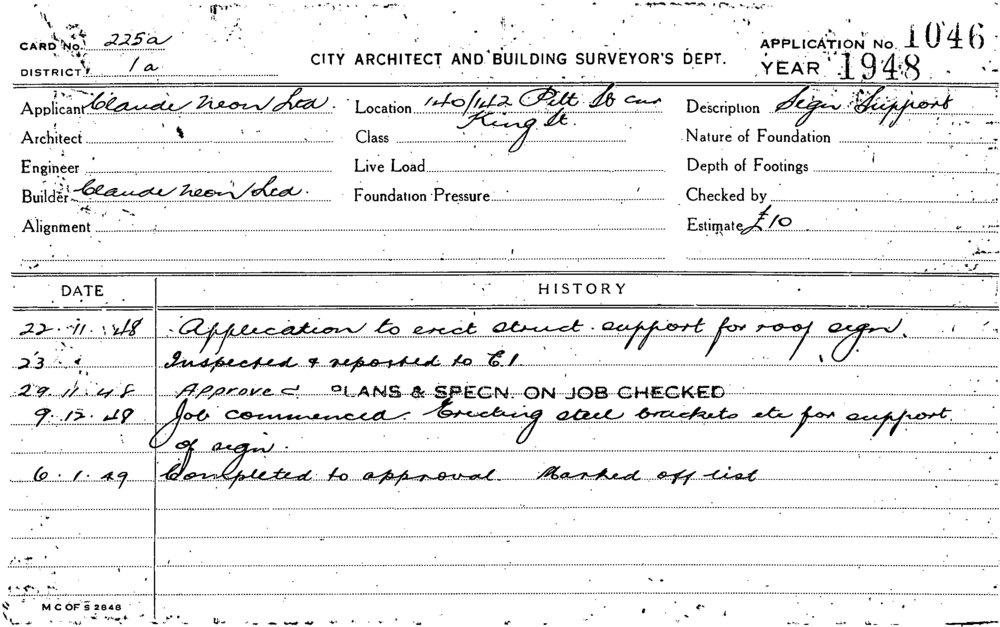 CARD No. 225a
DISTRICT 1a
CITY ARCHITECT AND BUILDING SURVEYOR'S DEPT.
APPLICATION No. 1046
YEAR 1948
Applicant Claude Neon Ltd. Location 140/142 Pitt St cnr Description Sign Support
King St.
Architect Class Nature of Foundation
Engineer Live Load Depth of Footings
Builder Claude Neon Ltd. Foundation Pressure Checked by
Alignment Estimate £10
DATE HISTORY
22.11.48 Application to erect struct. support for roof sign.
23 Inspected & reported to C.I.
29.11.48 Approved PLANS & SPECN. ON JOB CHECKED
9.12.48 Job commenced. Erecting steel brackets etc for support
of sign.
6.1.49 Completed to approval. Marked off list
M C OF S 2848